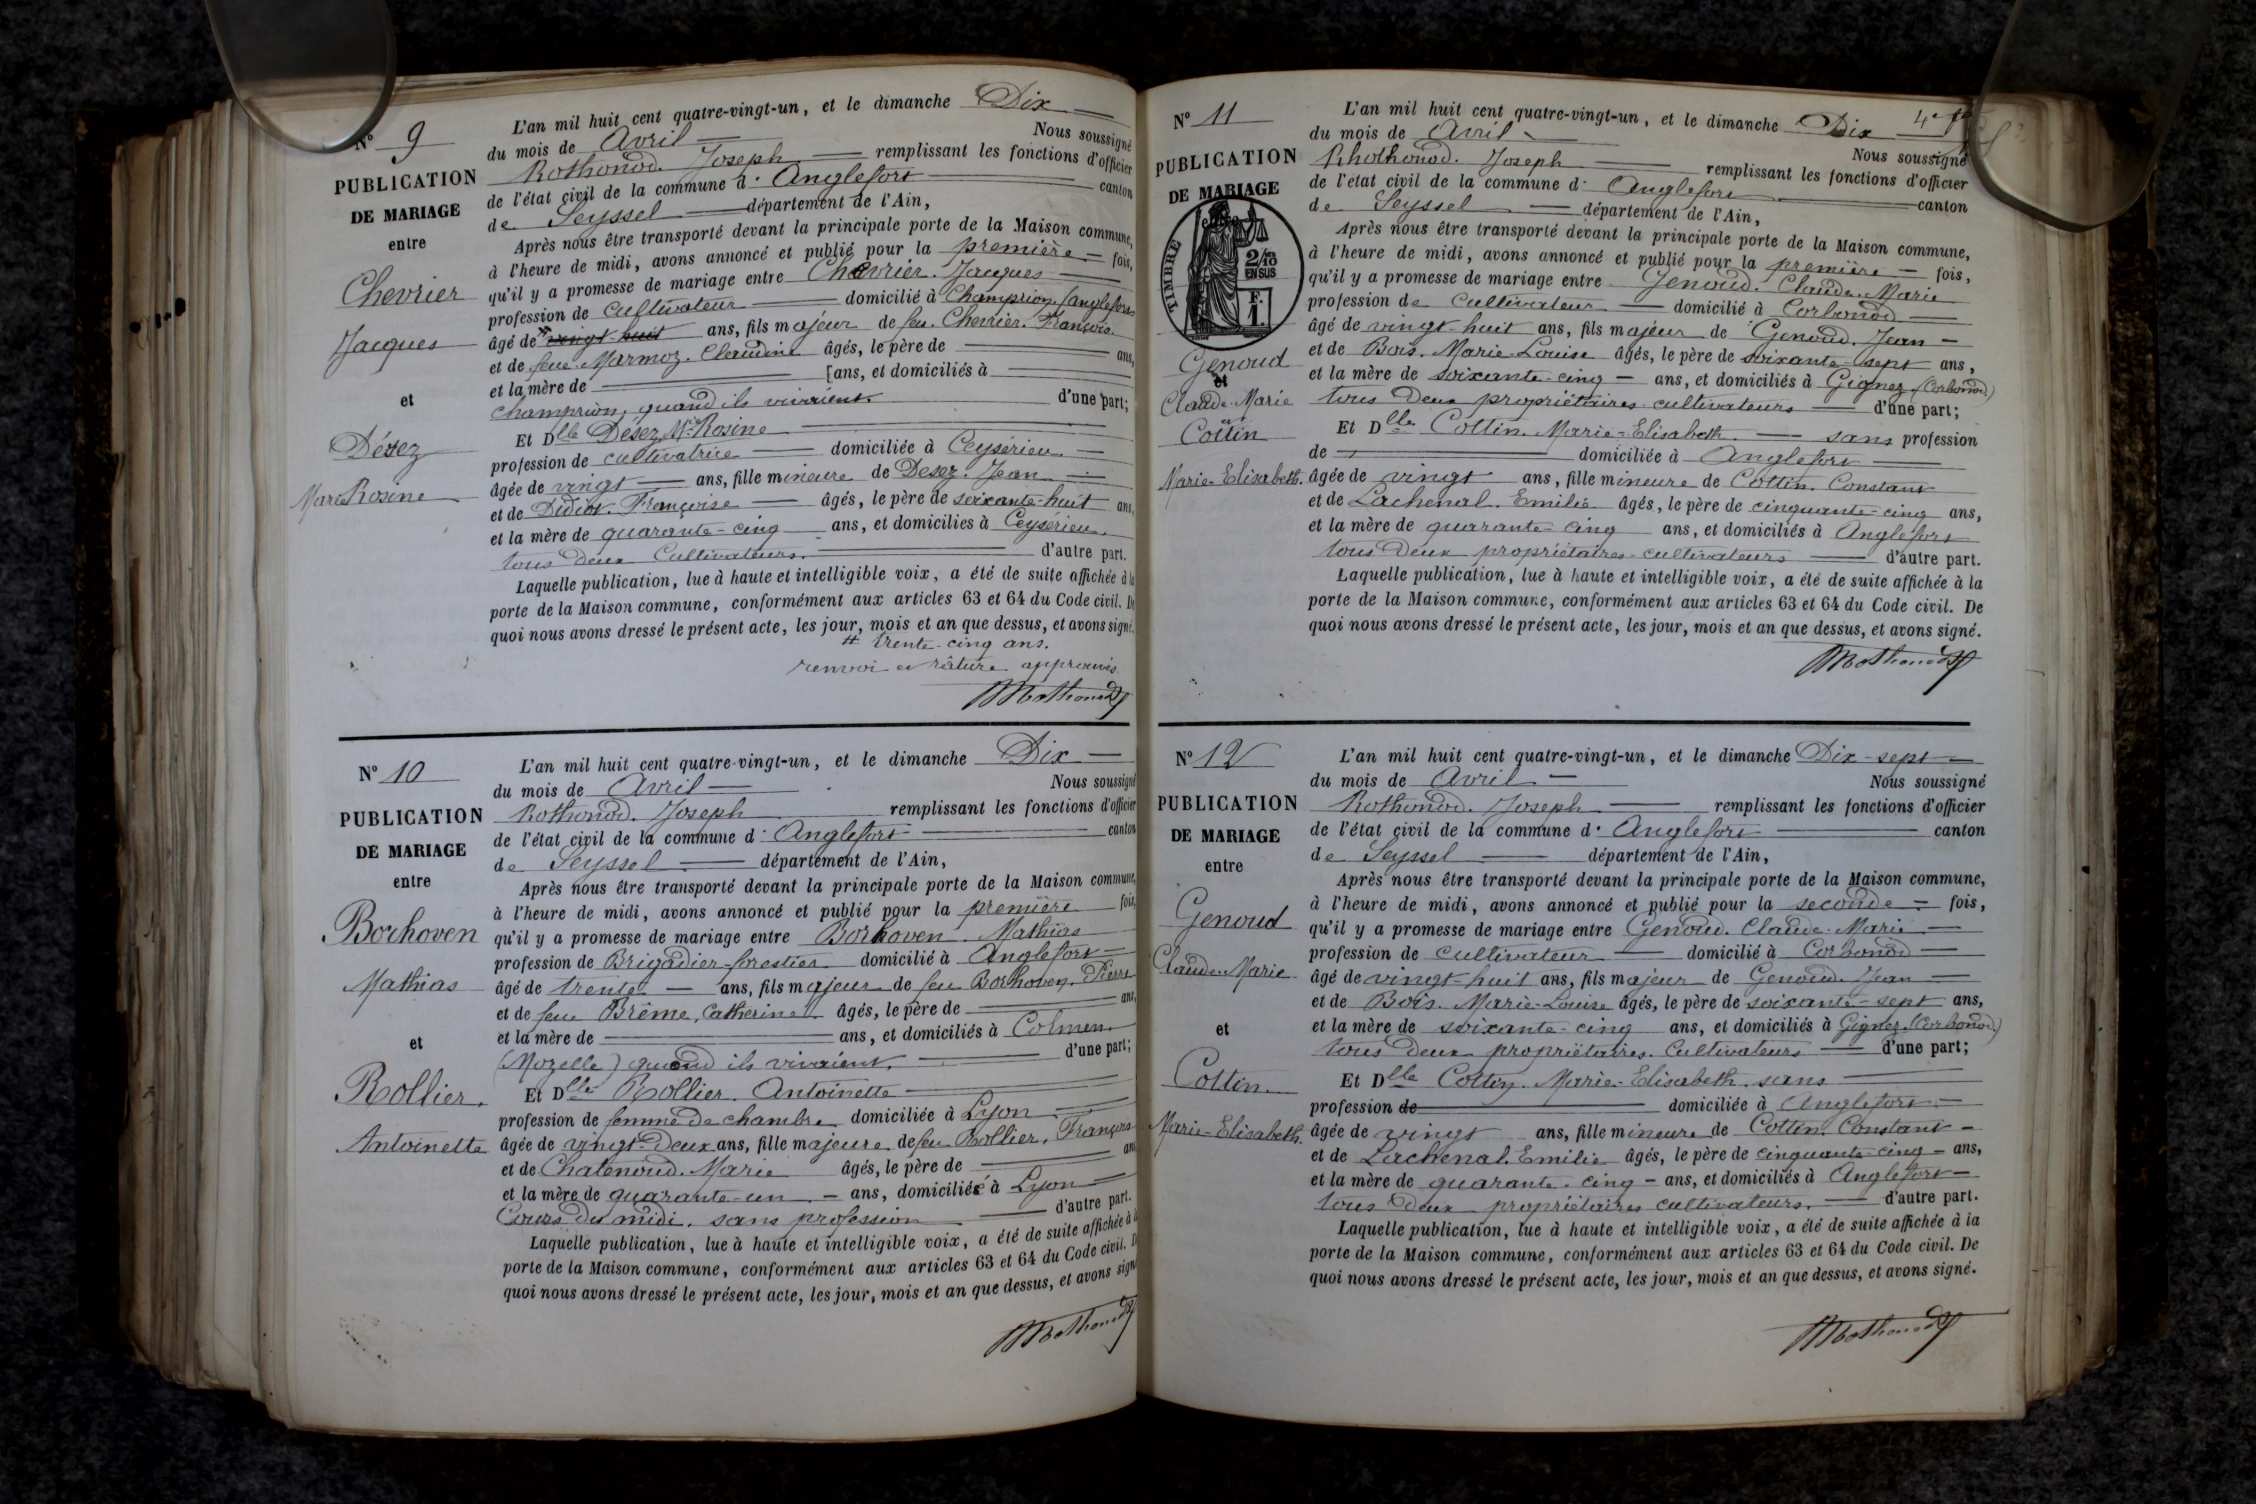 N° 9
PUBLICATION
DE MARIAGE
entre
Chevrier
Jacques
et
Désez
Marie Rosine
L'an mil huit cent quatre-vingt-un, et le dimanche Dix
du mois de Avril Nous soussigné
Rothonod. Joseph remplissant les fonctions d'officier
de l'état civil de la commune d' Anglefort canton
de Seyssel département de l'Ain,
Après nous être transporté devant la principale porte de la Maison commune,
à l'heure de midi, avons annoncé et publié pour la première fois,
qu'il y a promesse de mariage entre Chevrier. Jacques
profession de cultivateur domicilié à Champrion (anglefort
âgé de # vingt-huit ans, fils majeur de feu Chevrier. François
et de feue Marmoz. Claudine âgés, le père de ans,
et la mère de [ans, et domiciliés à
Champrion, quand ils vivaient d'une part;
Et Dlle Désez Mie Rosine
profession de cultivatrice domiciliée à Ceysérieu
âgée de vingt ans, fille mineure de Desez. Jean
et de Didiot. Françoise âgés, le père de soixante-huit ans,
et la mère de quarante-cinq ans, et domiciliés à Ceysérieu
tous deux Cultivateurs. d'autre part.
Laquelle publication, lue à haute et intelligible voix, a été de suite affichée à la
porte de la Maison commune, conformément aux articles 63 et 64 du Code civil. De
quoi nous avons dressé le présent acte, les jour, mois et an que dessus, et avons signé.
# trente-cinq ans.
renvoi et râture approuvés
Rothonod J
N° 10
PUBLICATION
DE MARIAGE
entre
Borhoven
Mathias
et
Rollier.
Antoinette
L'an mil huit cent quatre-vingt-un, et le dimanche Dix
du mois de Avril Nous soussigné
Rothonod. Joseph remplissant les fonctions d'officier
de l'état civil de la commune d' Anglefort canton
de Seyssel département de l'Ain,
Après nous être transporté devant la principale porte de la Maison commune,
à l'heure de midi, avons annoncé et publié pour la première fois,
qu'il y a promesse de mariage entre Borhoven. Mathias
profession de Brigadier-forestier domicilié à Anglefort
âgé de trente ans, fils majeur de feu Borhoven. Pierre
et de feue Brême, Catherine âgés, le père de ans,
et la mère de ans, et domiciliés à Colmen
(Mozelle) quand ils vivaient. d'une part;
Et Dlle Rollier. Antoinette
profession de femme de chambre domiciliée à Lyon
âgée de vingt-deux ans, fille majeure de feu Rollier. François
et de Chatenoud. Marie âgés, le père de ans
et la mère de quarante-un ans, domiciliés à Lyon
Cours du midi. sans profession d'autre part.
Laquelle publication, lue à haute et intelligible voix, a été de suite affichée à la
porte de la Maison commune, conformément aux articles 63 et 64 du Code civil. De
quoi nous avons dressé le présent acte, les jour, mois et an que dessus, et avons signé
Rothonod J
4e
N° 11
PUBLICATION
DE MARIAGE
TIMBRE
2/10
EN SUS
F.
1.
Genoud
et
Claude-Marie
Cottin
Marie-Elisabeth.
L'an mil huit cent quatre-vingt-un, et le dimanche Dix
du mois de Avril Nous soussigné
Rhothonod. Joseph remplissant les fonctions d'officier
de l'état civil de la commune d' Anglefort canton
de Seyssel département de l'Ain,
Après nous être transporté devant la principale porte de la Maison commune,
à l'heure de midi, avons annoncé et publié pour la première fois,
qu'il y a promesse de mariage entre Genoud. Claude-Marie
profession de cultivateur domicilié à Corbonod
âgé de vingt-huit ans, fils majeur de Genoud. Jean
et de Bois. Marie-Louise âgés, le père de soixante-sept ans,
et la mère de soixante-cinq ans, et domiciliés à Gignez (Corbonod)
tous deux propriétaires-cultivateurs d'une part;
Et Dlle Cottin. Marie-Elisabeth. sans profession
de domiciliée à Anglefort
âgée de vingt ans, fille mineure de Cottin. Constant
et de Lachenal. Emilie âgés, le père de cinquante-cinq ans,
et la mère de quarante-cinq ans, et domiciliés à Anglefort
tous deux propriétaires-cultivateurs d'autre part.
Laquelle publication, lue à haute et intelligible voix, a été de suite affichée à la
porte de la Maison commune, conformément aux articles 63 et 64 du Code civil. De
quoi nous avons dressé le présent acte, les jour, mois et an que dessus, et avons signé.
Rothonod J
N° 12
PUBLICATION
DE MARIAGE
entre
Genoud
Claude-Marie
et
Cottin.
Marie-Elisabeth.
L'an mil huit cent quatre-vingt-un, et le dimanche Dix-sept
du mois de Avril Nous soussigné
Rothonod. Joseph remplissant les fonctions d'officier
de l'état civil de la commune d' Anglefort canton
de Seyssel département de l'Ain,
Après nous être transporté devant la principale porte de la Maison commune,
à l'heure de midi, avons annoncé et publié pour la seconde fois,
qu'il y a promesse de mariage entre Genoud. Claude-Marie
profession de cultivateur domicilié à Corbonod
âgé de vingt-huit ans, fils majeur de Genoud. Jean
et de Bois. Marie-Louise âgés, le père de soixante-sept ans,
et la mère de soixante-cinq ans, et domiciliés à Gignez. (Corbonod)
tous deux propriétaires. Cultivateurs d'une part;
Et Dlle Cottin. Marie-Elisabeth. sans
profession de domiciliée à Anglefort
âgée de vingt ans, fille mineure de Cottin. Constant
et de Lachenal. Emilie âgés, le père de cinquante-cinq ans,
et la mère de quarante-cinq ans, et domiciliés à Anglefort
tous deux propriétaires cultivateurs. d'autre part.
Laquelle publication, lue à haute et intelligible voix, a été de suite affichée à la
porte de la Maison commune, conformément aux articles 63 et 64 du Code civil. De
quoi nous avons dressé le présent acte, les jour, mois et an que dessus, et avons signé.
Rothonod J